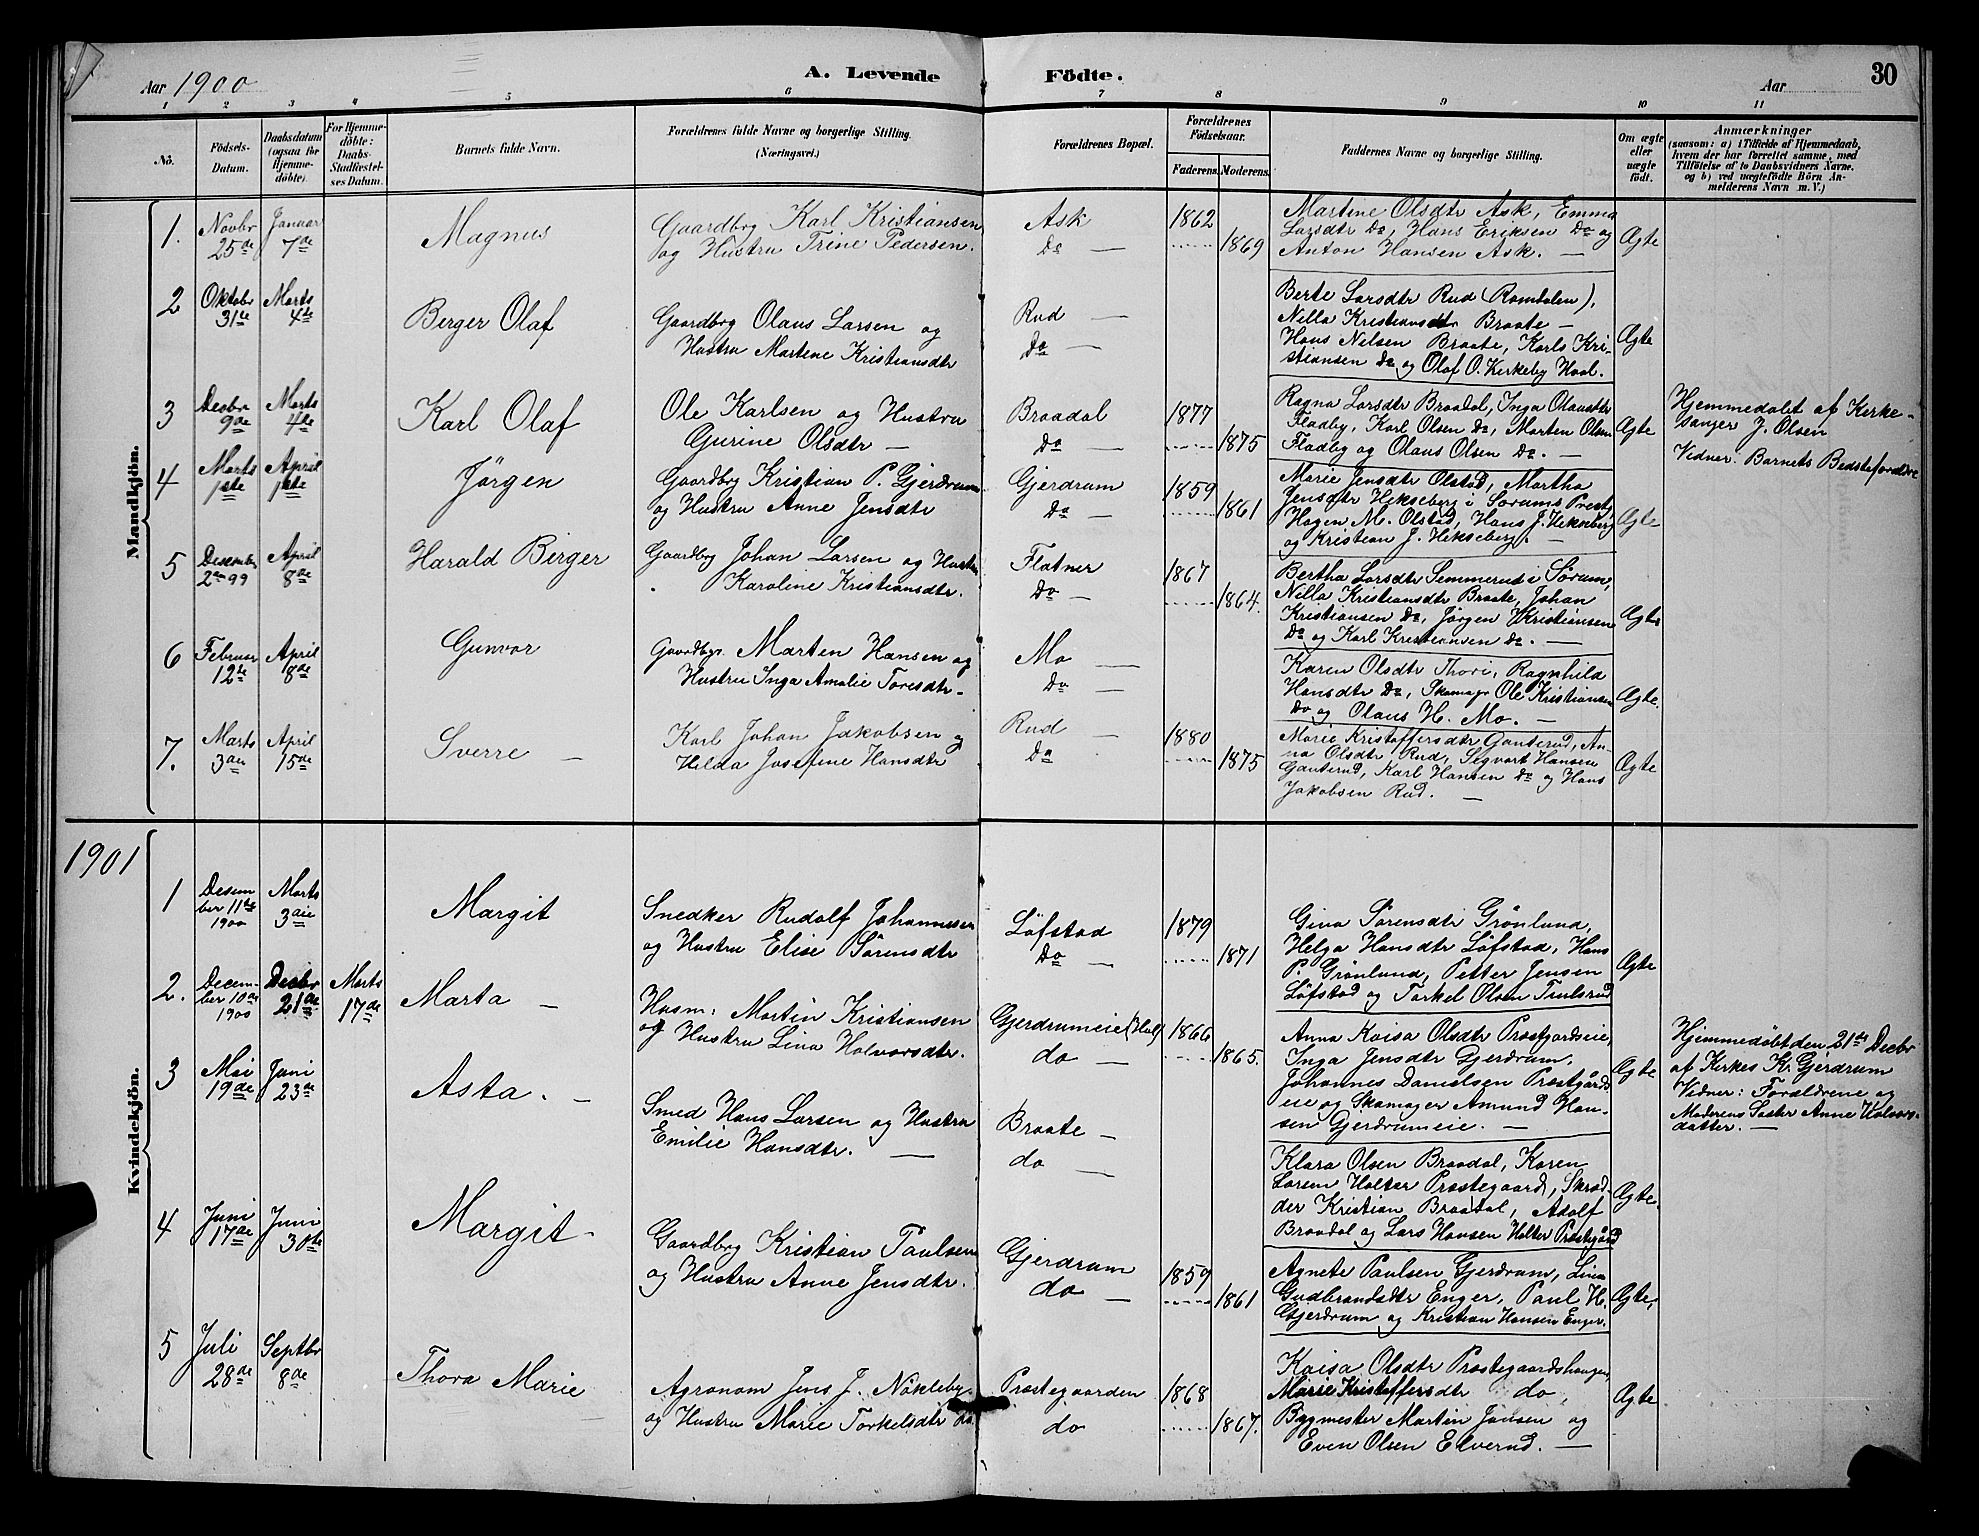 Aar 1900
A. Levende Födte.
Aar
30
1 2 3 4 5 6 7 8 9 10 11
No.
Födsels-Datum.
Daabsdatum (ogsaa for Hjemme-döbte).
For Hjemme-döbte: Daabs-Stadfæstel-ses Datum.
Barnets fulde Navn.
Forældrenes fulde Navne og borgerlige Stilling.
(Næringsvei.)
Forældrenes Bopæl.
Forældrenes Födselsaar.
Faderens. Moderens.
Faddernes Navne og borgerlige Stilling.
Om ægte eller uægte födt.
Anmærkninger
(saasom: a) i Tilfælde af Hjemmedaab, hvem der har forrettet samme, med Tilföielse af to Daabsvidners Navne, og b) ved uægtefödte Börn An-melderens Navn m. V.)
Mandkjön.
1. Novbr 25de Januar 7de
Magnus
Gaardbrg Karl Kristiansen
og Hustru Trine Pedersen.
Ask
Do —
1862
1869
Martine Olsdtr Ask, Emma
Larsdtr Do, Hans Eriksen Do og
Anton Hansen Ask. —
Ægte
2 Oktobr 31te Marts 4de
Berger Olaf
Gaardbrg Olaus Larsen og
Hustru Martene Kristiansdtr
Rud —
Do —
Berte Larsdtr Rud (Romdalen),
Nilla Kristiansdtr Braate —
Hans Nelsen Braate, Karls Kri-
stiansen Do og Olaf O. Kirkeby Haal.
Ægte
3 Decbr 9de Marts 4de
Karl Olaf
Ole Karlsen og Hustru
Gurine Olsdtr —
Braadal
Do —
1877
1875
Ragna Larsdtr Braadal, Inga Olausdtr
Fladby, Karl Olsen Do, Morten Olsen
Fladby og Olaus Olsen Do. —
Ægte
Hjemmedøbt af Kirke-
sanger J. Olsen
Vidner. Barnets Bedsteforældre
4 Marts 1ste April 1ste
Jörgen
Gaardbrg Kristian P. Gjerdrum
og Hustru Anne Jensdtr
Gjerdrum
Do —
1859
1861
Marie Jensdtr Olstad, Martha
Jensdtr Hekseberg i Sørums Prestg,
Hagen M. Olstad, Hans J. Hekseberg
og Kristian J. Hekseberg. —
Ægte
5 Desember 2den 99 April 8de
Harald Birger
Gaardbrg Johan Larsen og Hustru
Karoline Kristiansdtr.
Flatner
Do —
1867
1864.
Bertha Larsdtr Semmerud i Sørum,
Nilla Kristiansdtr Braate, Johan
Kristiansen Do, Jørgen Kristiansen
Do og Karl Kristiansen do. —
Ægte
6 Februar 12te April 8de
Gunvor
Gaardbgr. Marten Hansen og
Hustru Inga Amalie Toresdtr.
Mo —
Do —
Karen Olsdtr Thori, Ragnhild
Hansdtr Do, Skomagr Ole Kristiansen
Do og Olaus H. Mo. —
Ægte.
7. Marts 3die April 15de
Sverre —
Karl Johan Jakobsen og
Hilda Josefine Hansdtr
Rud —
Do
1880
1875
Marie Kristoffersdtr Ganterud, An-
na Olsdtr Rud, Segvart Hansen
Ganterud, Karl Hansen Do og Hans
Jakobsen Rud. —
Ægte
1901
Kvindekjön.
1 Desem ber 11te 1900 Marts 3die
Margit
Snedker Rudolf Johannesen
og Hustru Elise Sørensdtr
Løfstad
Do —
1879
1871
Gina Sørensdtr Grønlund,
Helga Hansdtr Løfstad, Hans
P. Grønlund, Petter Jensen
Løfstad og Torkel Olsen Trulsrud
Ægte
2. Decem-ber 10de 1900 Decbr 21de Marts 17de
Marta —
Husm: Martin Kristiansen
og Hustru Lina Halvorsdtr.
Gjerdrumeie (Hval)
do —
1866
1865.
Anna Kaisa Olsdtr Præstgardseie,
Inga Jensdtr Gjerdrum,
Johannes Danielsen Præstgårds
eie og Skomager Amund Han-
sen Gjerdrumeie. —
Ægte
Hjemmedøbt den 21de Decbr
af Kirkes K. Gjerdrum
Vidner: Forældrene og
Moderens Søster Anne Halvors-
datter. —
3 Mai 19de Juni 23de
Asta. —
Smed Hans Larsen og Hustru
Emilie Hansdtr. —
Braate —
do —
Klara Olsen Braadal, Karen
Larsen Holter Præstegaard, Skræd-
der Kristian Braadal, Adolf
Braadal og Lars Hansen Holter Præstegård
Ægte.
4 Juni 17de Juni 30te
Margit —
Gaardbrg Kristian Paulsen
og Hustru Anne Jensdtr.
Gjerdrum
do —
1859
1861
Agnete Paulsen Gjerdrum, Lina
Gudbrandsdtr Enger, Paul H.
Gjerdrum og Kristian Hansen Enger.
Ægte.
5 Juli 28de Septbr 8de
Thora Marie
Agronom Jens J. Nökleby
og Hustru Marie Torkelsdtr do
Præstegaarden
do
1868
1867.
Kaisa Olsdtr Præstegaardshaugen,
Marie Kristoffersdtr do,
Bygmester Martin Jansen og
Even Olsen Elverud. —
Ægte